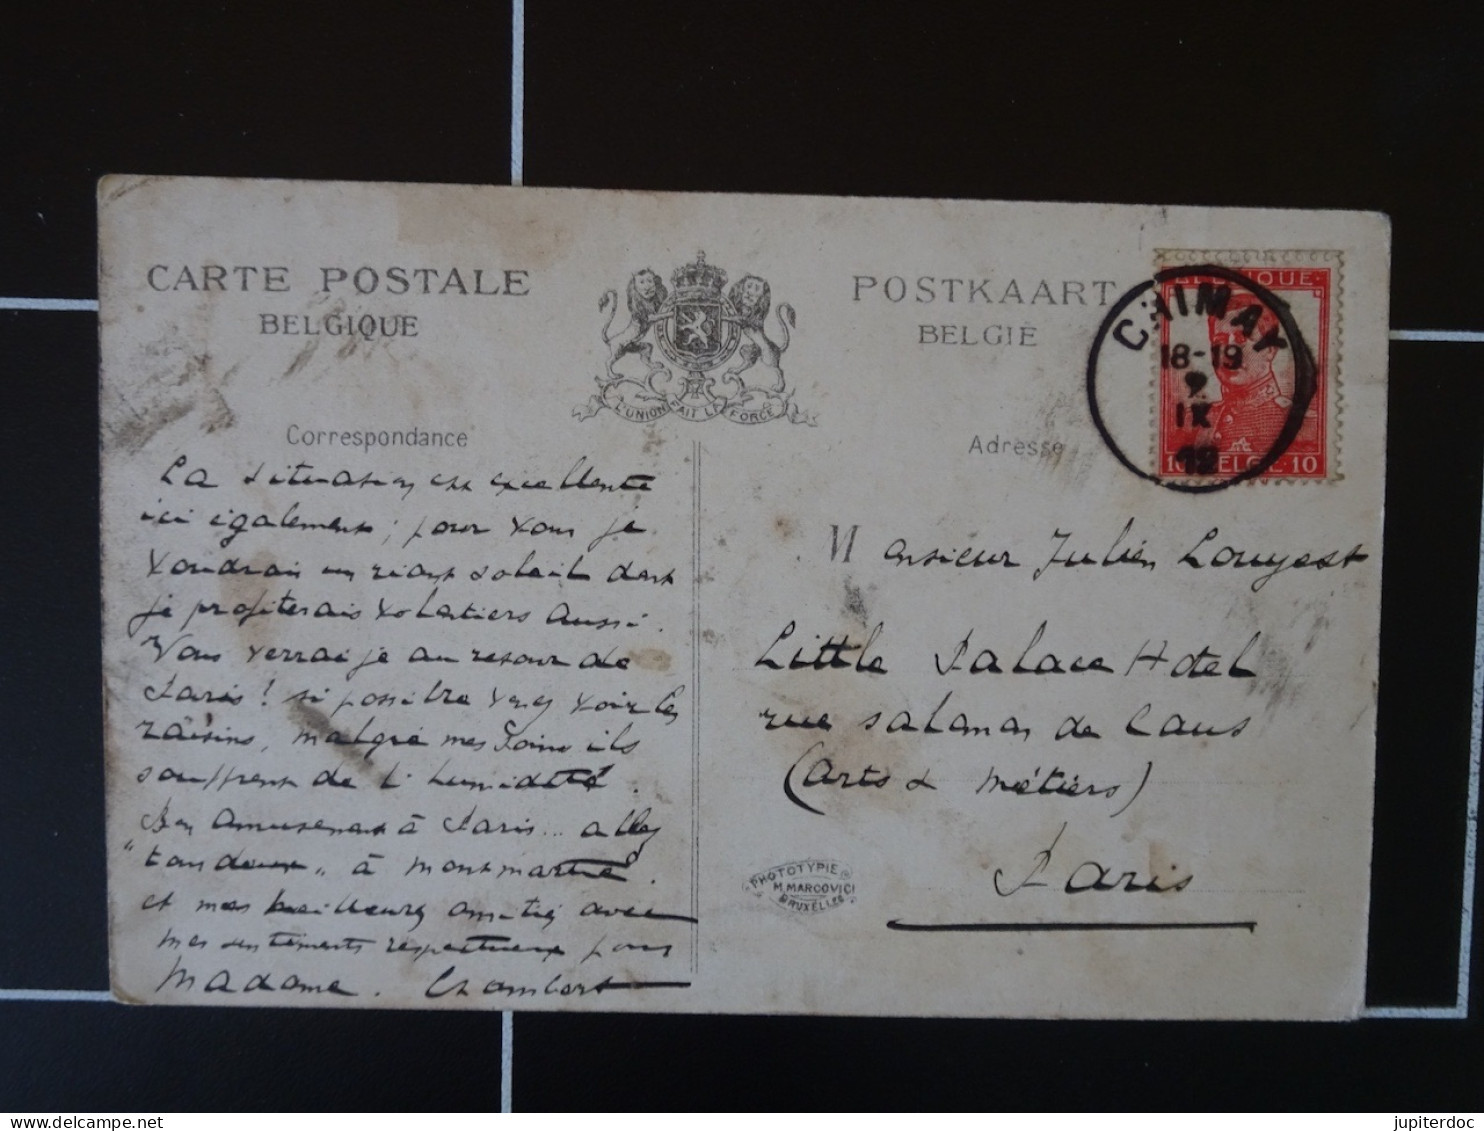 CARTE POSTALE
BELGIQUE
L'UNION FAIT LA FORCE
POSTKAART
BELGIË
BELGIQUE
10 BELGIË 10
CHIMAY
18-19
9
IX
12
Correspondance
La situation est excellente
ici également; pour vous je
voudrais un riant soleil dont
je profiterais volontiers aussi.
Vous verrai je au retour de
Paris! si possible venez voir les
raisins, malgré mes soins ils
souffrent de l'humidité.
Bon amusement à Paris... allez
"tous deux" à Montmartre.
et mes meilleures amitiés avec
mes sentiments respectueux pour
Madame. Chambert
Adresse
Monsieur Julien Louyest
Little Palace Hotel
rue Salomon de Caus
(Arts & Métiers)
Paris
PHOTOTYPIE
M. MARCOVICI
BRUXELLES
jupiterdoc